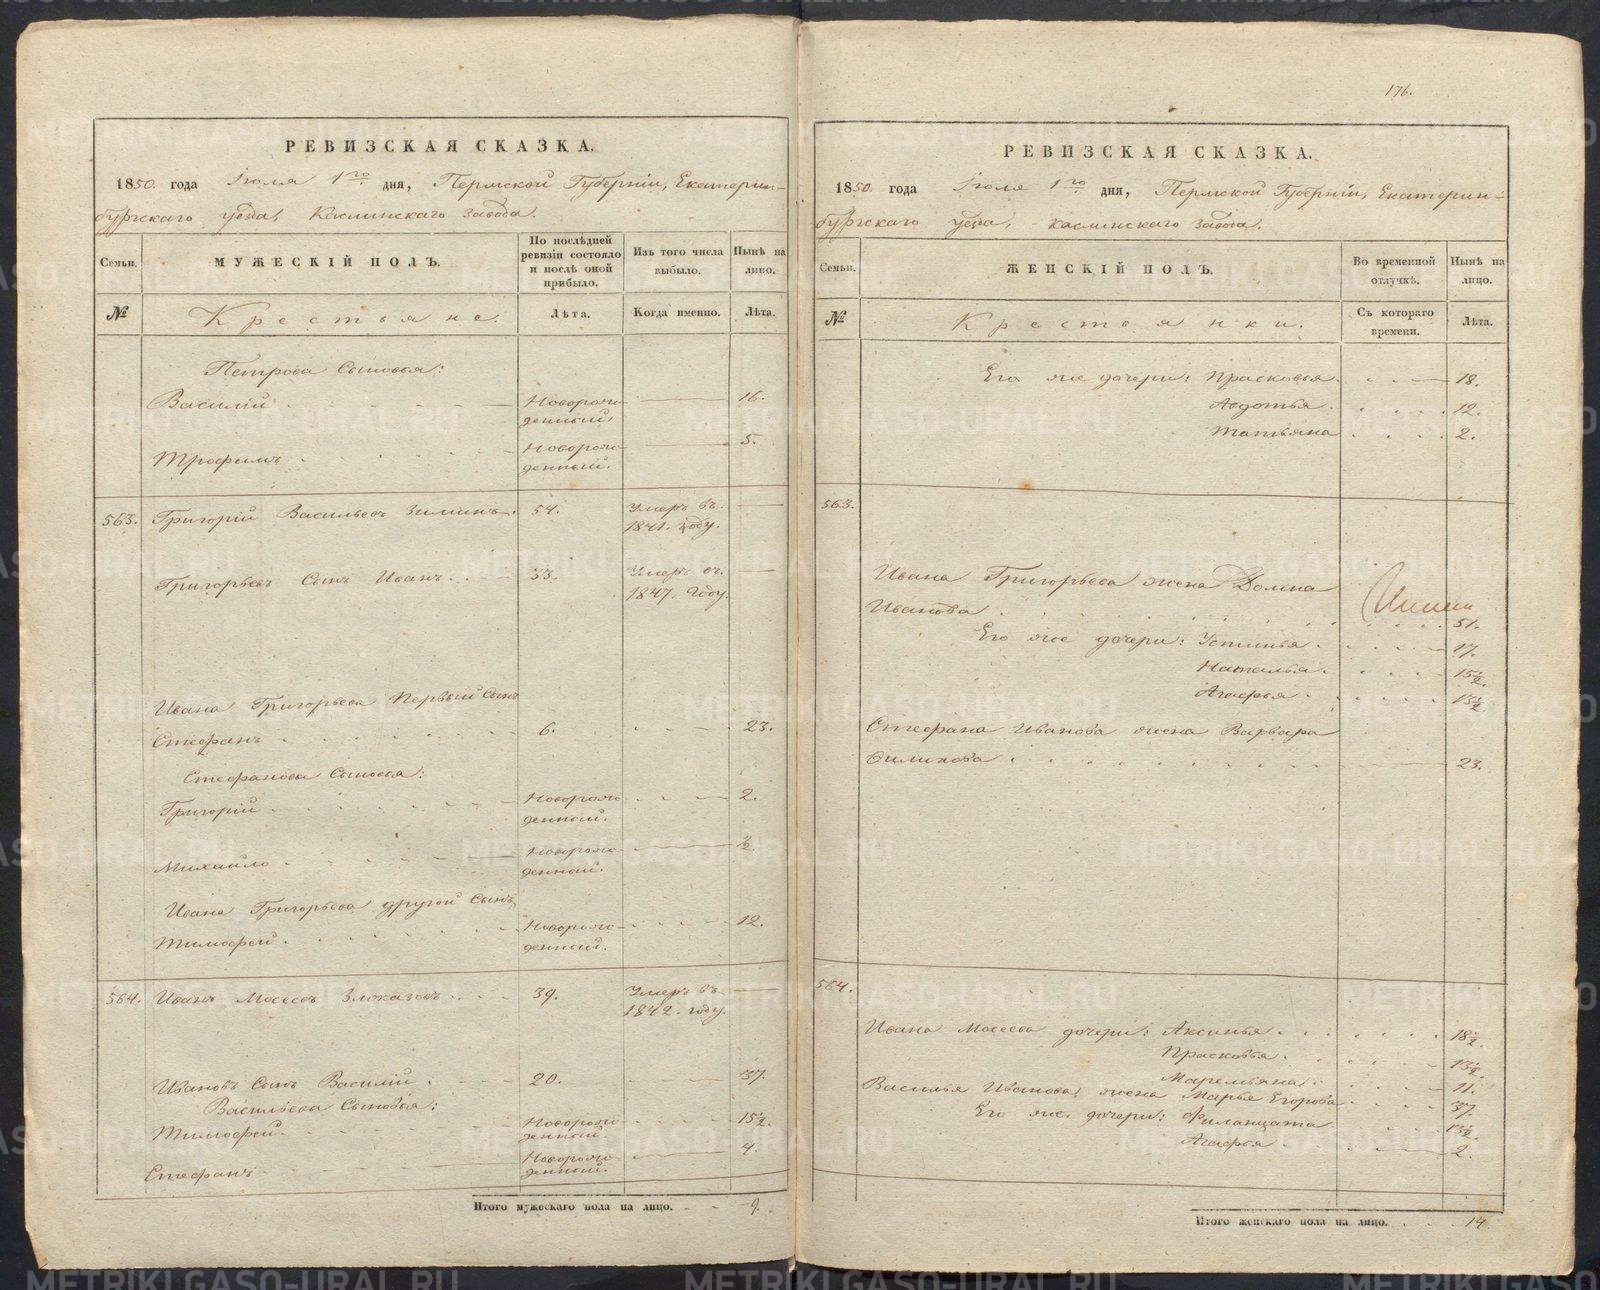 РЕВИЗСКАЯ СКАЗКА.
1850. года Іюля 1го дня, Пермской Губерніи, Екатерин-
бургскаго уезда, Каслинскаго завода.
Семьи.
МУЖЕСКІЙ ПОЛЪ.
По послѣдней ревизіи состояло и послѣ оной прибыло.
Изъ того числа выбыло.
Нынѣ на лицо.
№
Крестьяне.
Лѣта.
Когда именно.
Лѣта.
Петрова Сыновья:
Василій Новорож- 16.
денный.
Трофимъ Новорож- 5.
денный.
563. Григорій Васильевъ Зиминъ. 54. Умеръ въ
1841. году.
Григорьевъ Сынъ Иванъ. 33. Умеръ въ
1847. Году.
Ивана Григорьева Первый Сынъ
Стефанъ 6. 23.
Стефановы Сыновья:
Григорій Новорож- 2.
денный.
Михайло Новорож- 1/2.
денный.
Ивана Григорьева другой Сынъ
Тимофей Новорож- 12.
денный.
564. Иванъ Мосеевъ Злоказовъ 39. Умеръ въ
1842. году.
Ивановъ Сынъ Василій 20. 37.
Васильева Сыновья:
Тимофей Новорож- 15 1/2.
денный.
Стефанъ Новорож- 4.
денный.
Итого мужескаго пола на лицо. 9.
176.
РЕВИЗСКАЯ СКАЗКА.
1850. года Іюля 1го дня, Пермской Губерніи, Екатерин-
бургскаго уезда, Каслинскаго завода.
Семьи.
ЖЕНСКІЙ ПОЛЪ.
Во временной отлучкѣ.
Нынѣ на лицо.
№
Крестьянки.
Съ котораго времени.
Лѣта.
Его же дочери: Прасковья 18.
Авдотья 12.
Татьяна 2.
563.
Ивана Григорьева жена Домна
Иванова 51.
Его же дочери: Устинья 17.
Наталья 15 1/2.
Агафья 13 1/2.
Стефана Иванова жена Варвара
Филипова 23.
564.
Ивана Мосеева дочери: Аксинья 18 1/2.
Прасковья 13 1/2.
Маремьяна 11.
Василья Иванова жена Марья Егорова 37.
Его же дочери: Филанцата 13 1/2.
Агафья 2.
Итого женскаго пола на лицо. 14.
METRIKI.GASO-URAL.RU